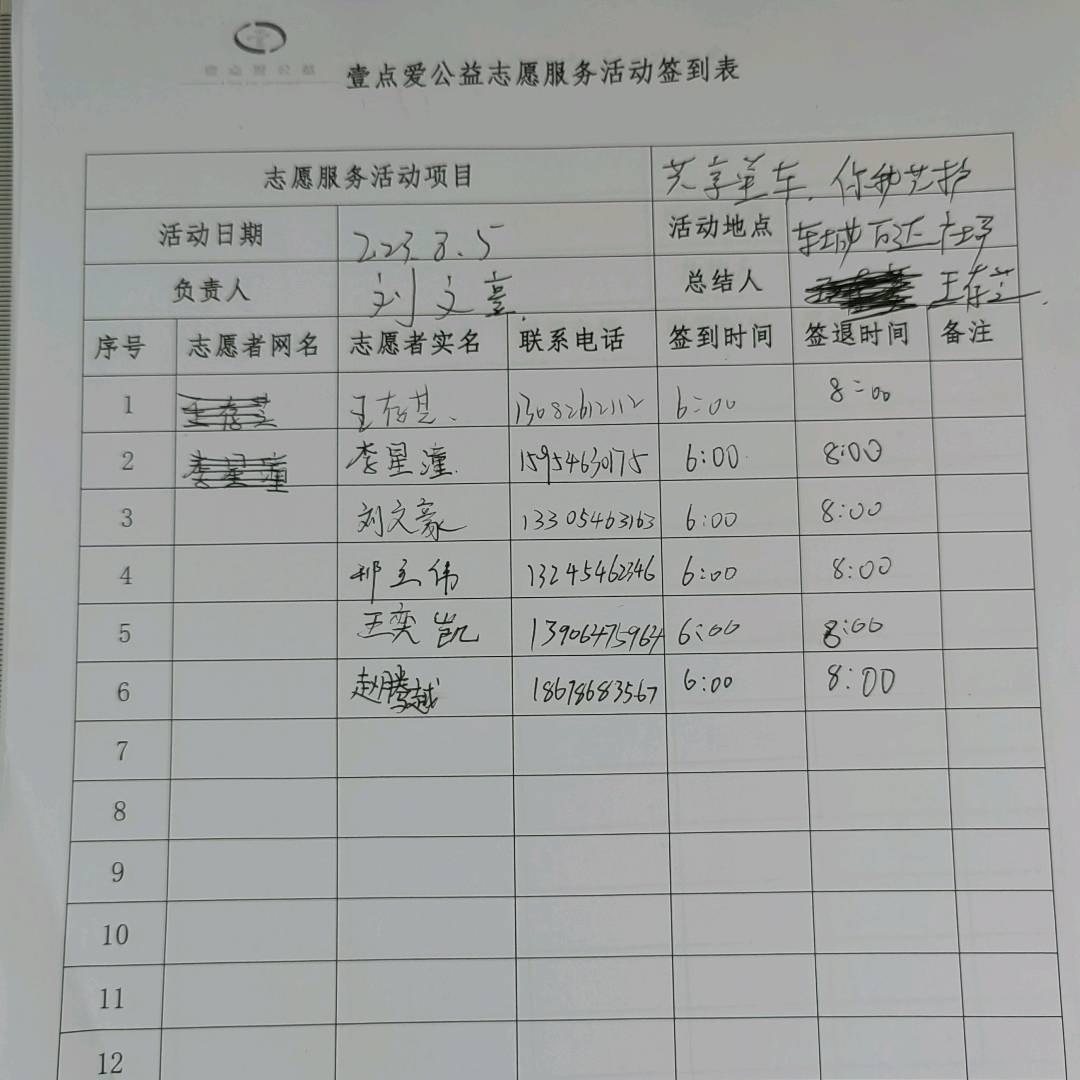 壹点爱公益志愿服务活动签到表
志愿服务活动项目 共享单车,你我共护
活动日期 2023.8.5 活动地点
负责人 刘文豪 总结人 王存芝
序号 志愿者网名 志愿者实名 联系电话 签到时间 签退时间 备注
1 王存芝 13082612112 6:00 8:00
2 李星潼 李星潼 15954630175 6:00 8:00
3 刘文豪 13305463163 6:00 8:00
4 祁玉伟 13245462346 6:00 8:00
5 王奕凯 13906475964 6:00 8:00
6 赵腾越 18678683567 6:00 8:00
7
8
9
10
11
12